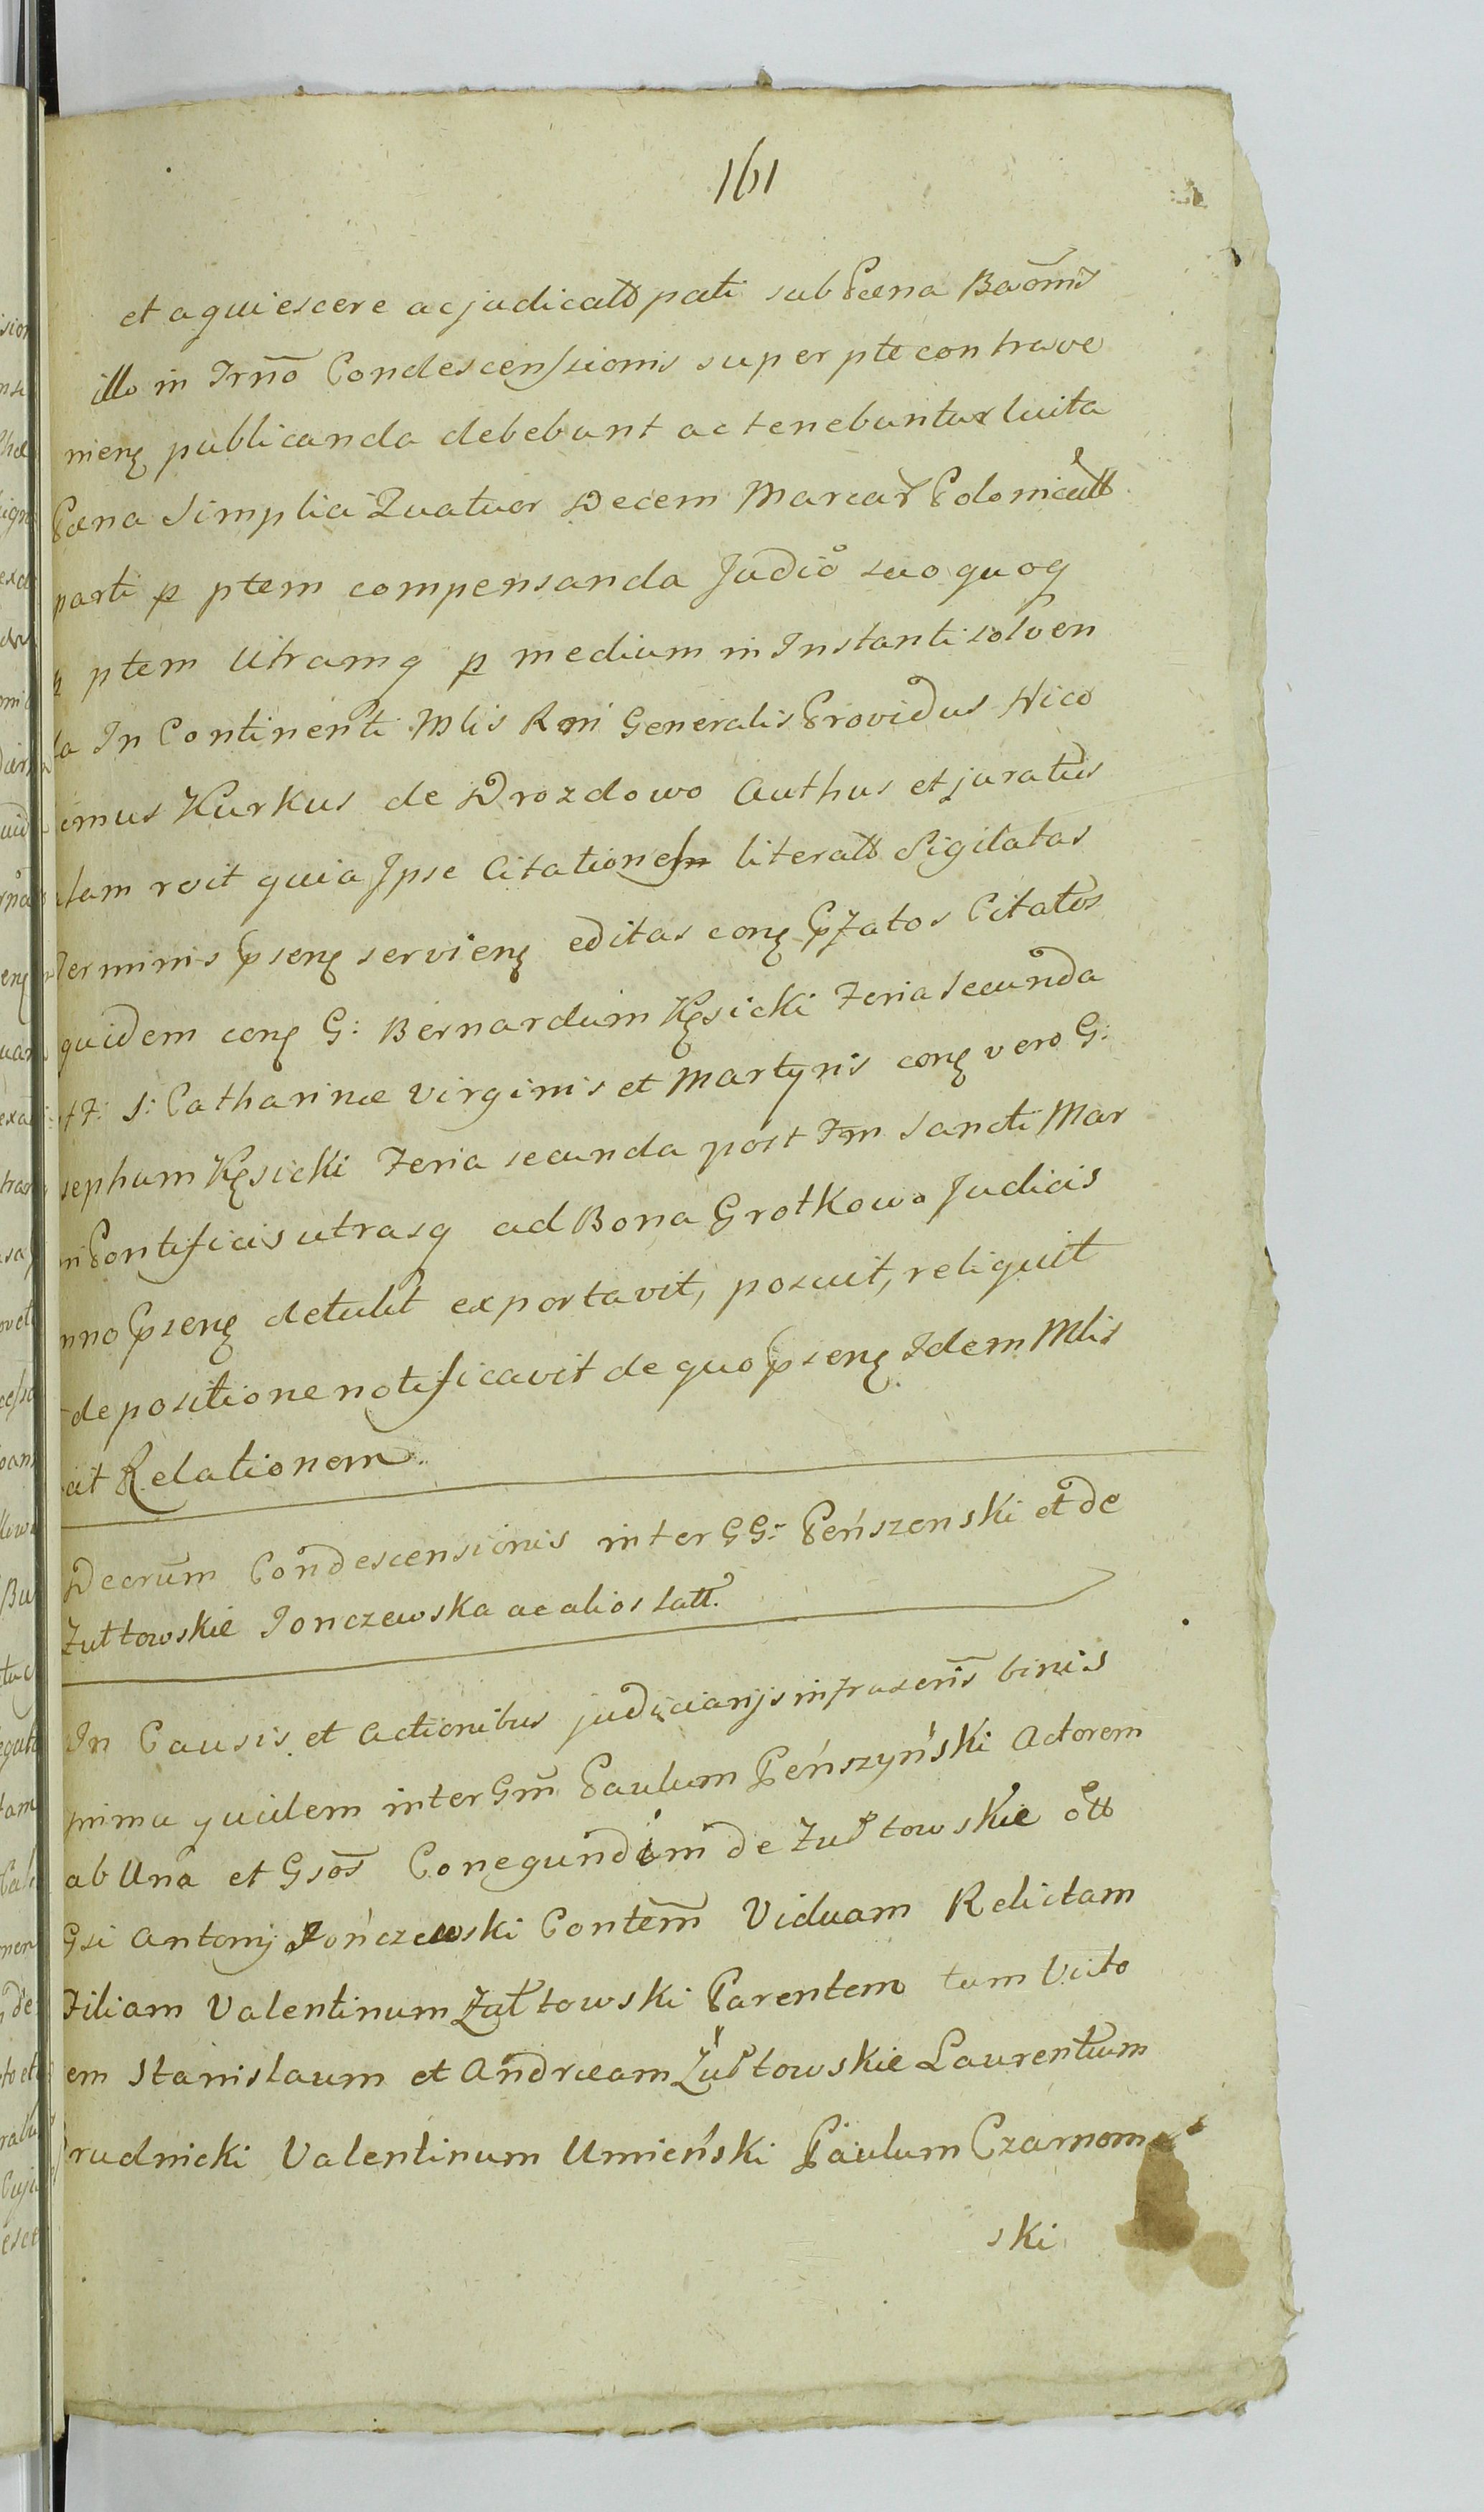 161
et aquiescere ac judicatt pati sub Pæna Baõnis
illo in Trnõ Condescensionis super pte contrave
nienę publicanda debebunt ac tenebuntur luita
Pæna Simplici Quatuor Decem Marcar Polonicatt
parti p ptem compensanda Judio suo quoq
p ptem Utramq p medium in Instanti solven
da In Continenti Mlis Rni Generalis Providus Nico
emus Kurkus de Drozdowo Authus et juratus
lam revit quia Ipse Citationem literatt Sigilatas
Terminis Pnsenę servienę editas conę Pfatos Citatos
quidem conę G: Bernardum Kęsicki Feria Secunda
F: S: Catharinæ Virginis et Martyris conę vero G:
sephum Kęsicki Feria secunda post Fm Sancti Mar
ni Pontificis utrasq ad Bona Grotkowo Judicis
nno Pnsenę detulit exportavit, posuit, reliquit
depositione notificavit de quo Pnsenę Idem Mlis
cit Relationem.
Decrum Condescensionis inter GG: Peńszenski et de
Zułtowskie Jonczewska ac alios Latt.
In Causis et Actionibus judiciarijs infrascris binis
prima quidem inter Gm Paulum Peńszyński Actorem
ab Una et Gsos Conegundim de Zułtowskie ott
Gsi Antonij Jończewski Contem Viduam Relictam
Filiam Valentinum Zułtowski Parentem tam Victo
em Stanislaum et Andræam Żułtowskie Laurentium
Prudnicki Valentinum Umieński Paulum Czarnom
ski